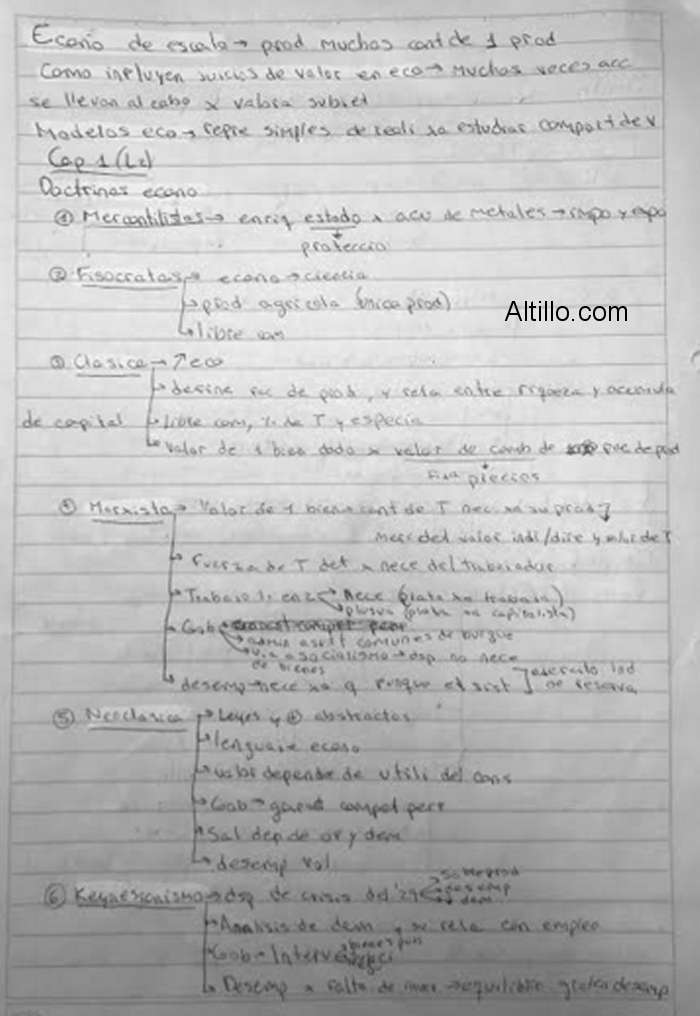 Econo de escala → prod muchas cant de 1 prod
Como influyen juicios de valor en eco → Muchas veces acc
se llevan al cabo x valora subjet
Modelos eco → repre simples de reali xa estudiar comport de v
Cap 1 (L2)
Doctrinas econo
① Mercantilistas → enriq estado x acu de metales → impo y expo
protecció
② Fisocratas → econo → ciencia
→ prod agricola (unica prod)
→ libre com
Altillo.com
③ Clasica → ↑ eco
→ define fac de prod, y rela entre riqueza y acumula
de capital → libre com, de T y especia
→ Valor de 1 bien dado x valor de comb de fac de prod
fija precios
④ Marxista → Valor de 1 bien = cant de T nec xa su prod
Mer del valor indi/dire y de T
→ Fuerza de T det x nece del trabajador
→ Trabajo en 2 → Nece (plata xa trabaja)
→ plusva (plata xa capitalista)
→ Gob →
→ admin asunt comunes de burgue
→ via a socialismo → dsp no nece
de bienes
→ desemp → nece xa q funque el sist ] ejercito ind
de reserva
⑤ Neoclasica → Leyes y ⊕ abstractos
→ lenguaje econo
→ valor depende de utili del cons
→ Gob → garant compet perf
→ Sal dep de of y dem
→ desemp vol
⑥ Keynesianismo → dsp de crisis del '29 → sobreprod
→ desemp
→ ↓ dem
→ Analisis de dem y su rela con empleo
→ Gob → Interv → bienes pub
→ Desemp x falta de inver → equilibrio desemp